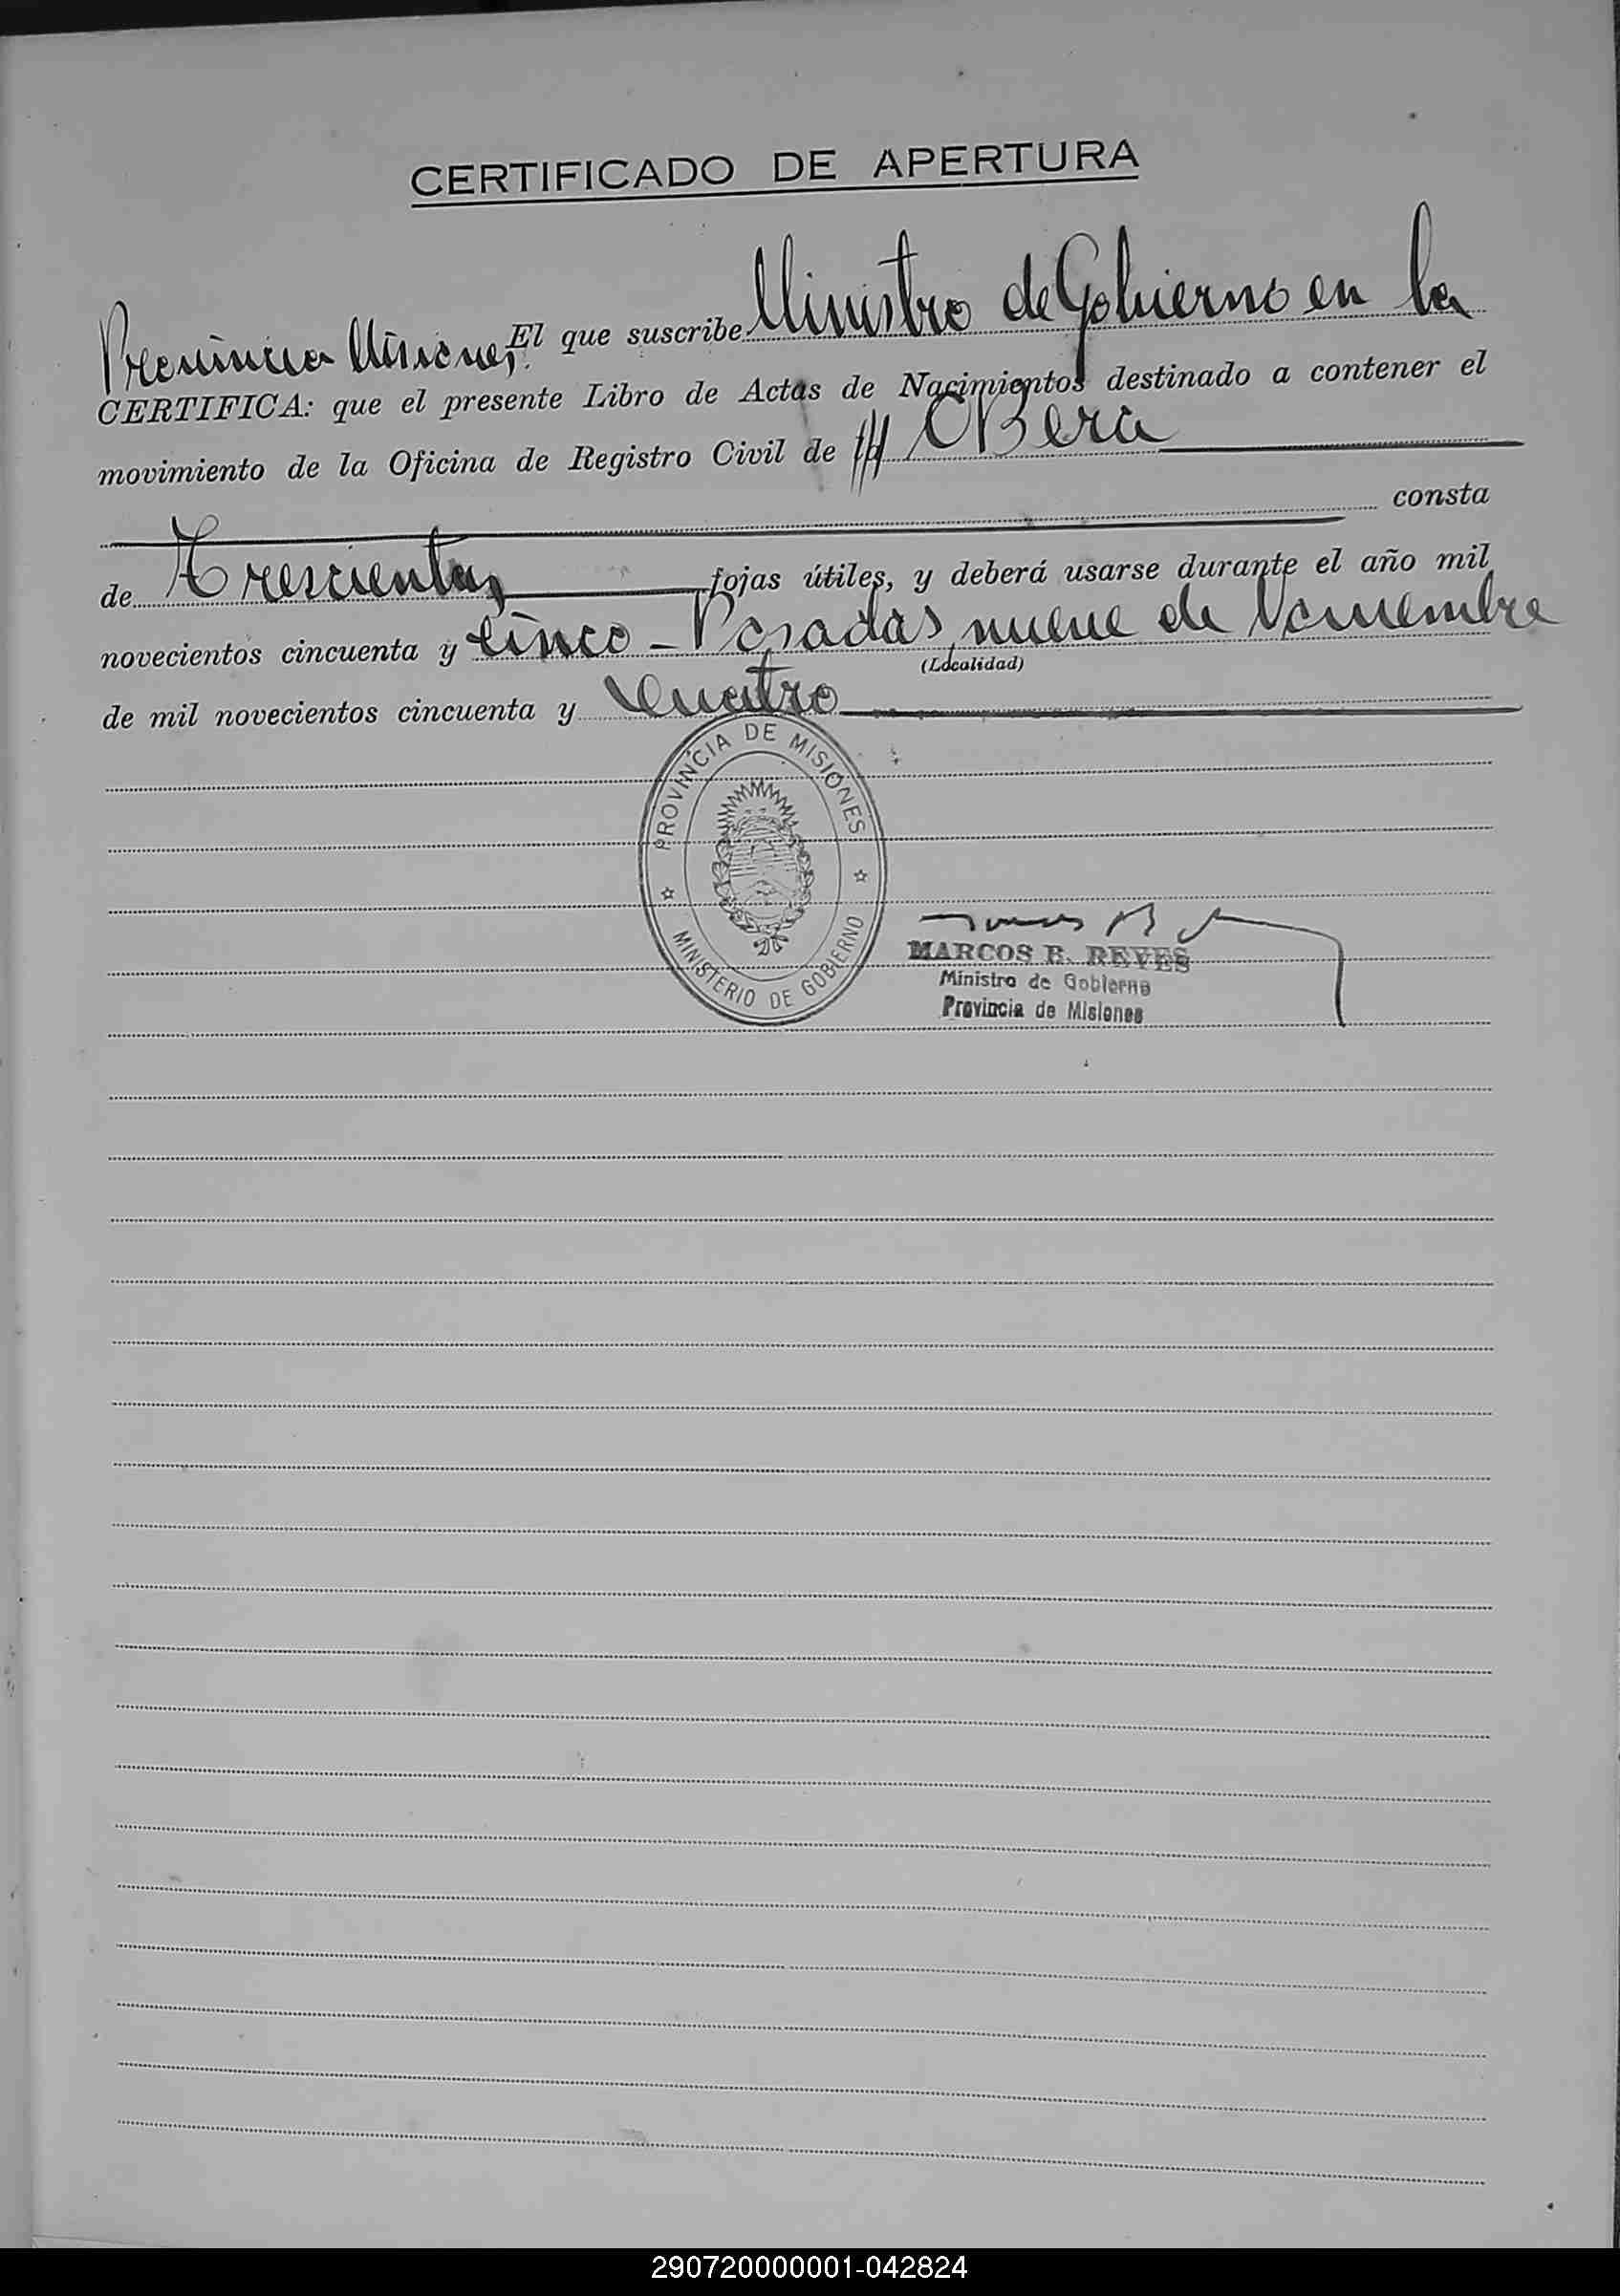 CERTIFICADO DE APERTURA
El que suscribe Ministro de Gobierno en la
Provincia Misiones.
CERTIFICA: que el presente Libro de Actas de Nacimientos destinado a contener el
movimiento de la Oficina de Registro Civil de OBera
consta
de Trescientas fojas útiles, y deberá usarse durante el año mil
novecientos cincuenta y cinco - Posadas nueve de Noviembre
(Localidad)
de mil novecientos cincuenta y Cuatro
PROVINCIA DE MISIONES
MINISTERIO DE GOBIERNO
MARCOS B. REYES
Ministro de Gobierno
Provincia de Misiones
290720000001-042824